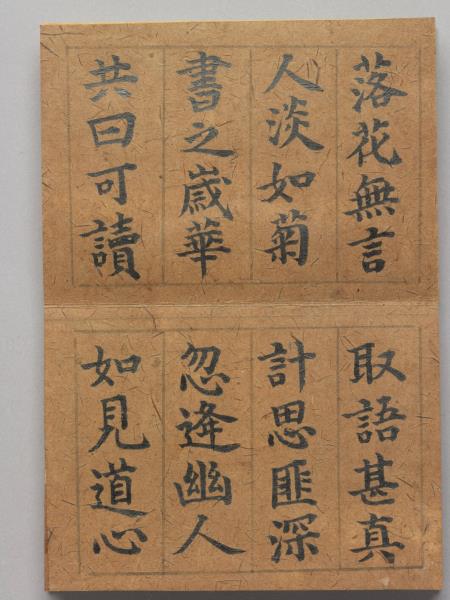 落花無言
人淡如菊
書之歲華
共曰可讀
取語甚真
計思匪深
忽逢幽人
如見道心